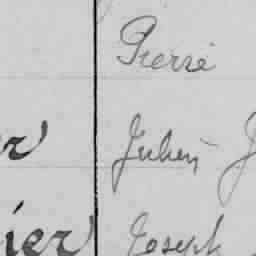 Pierre
r Julien J
ier Joseph